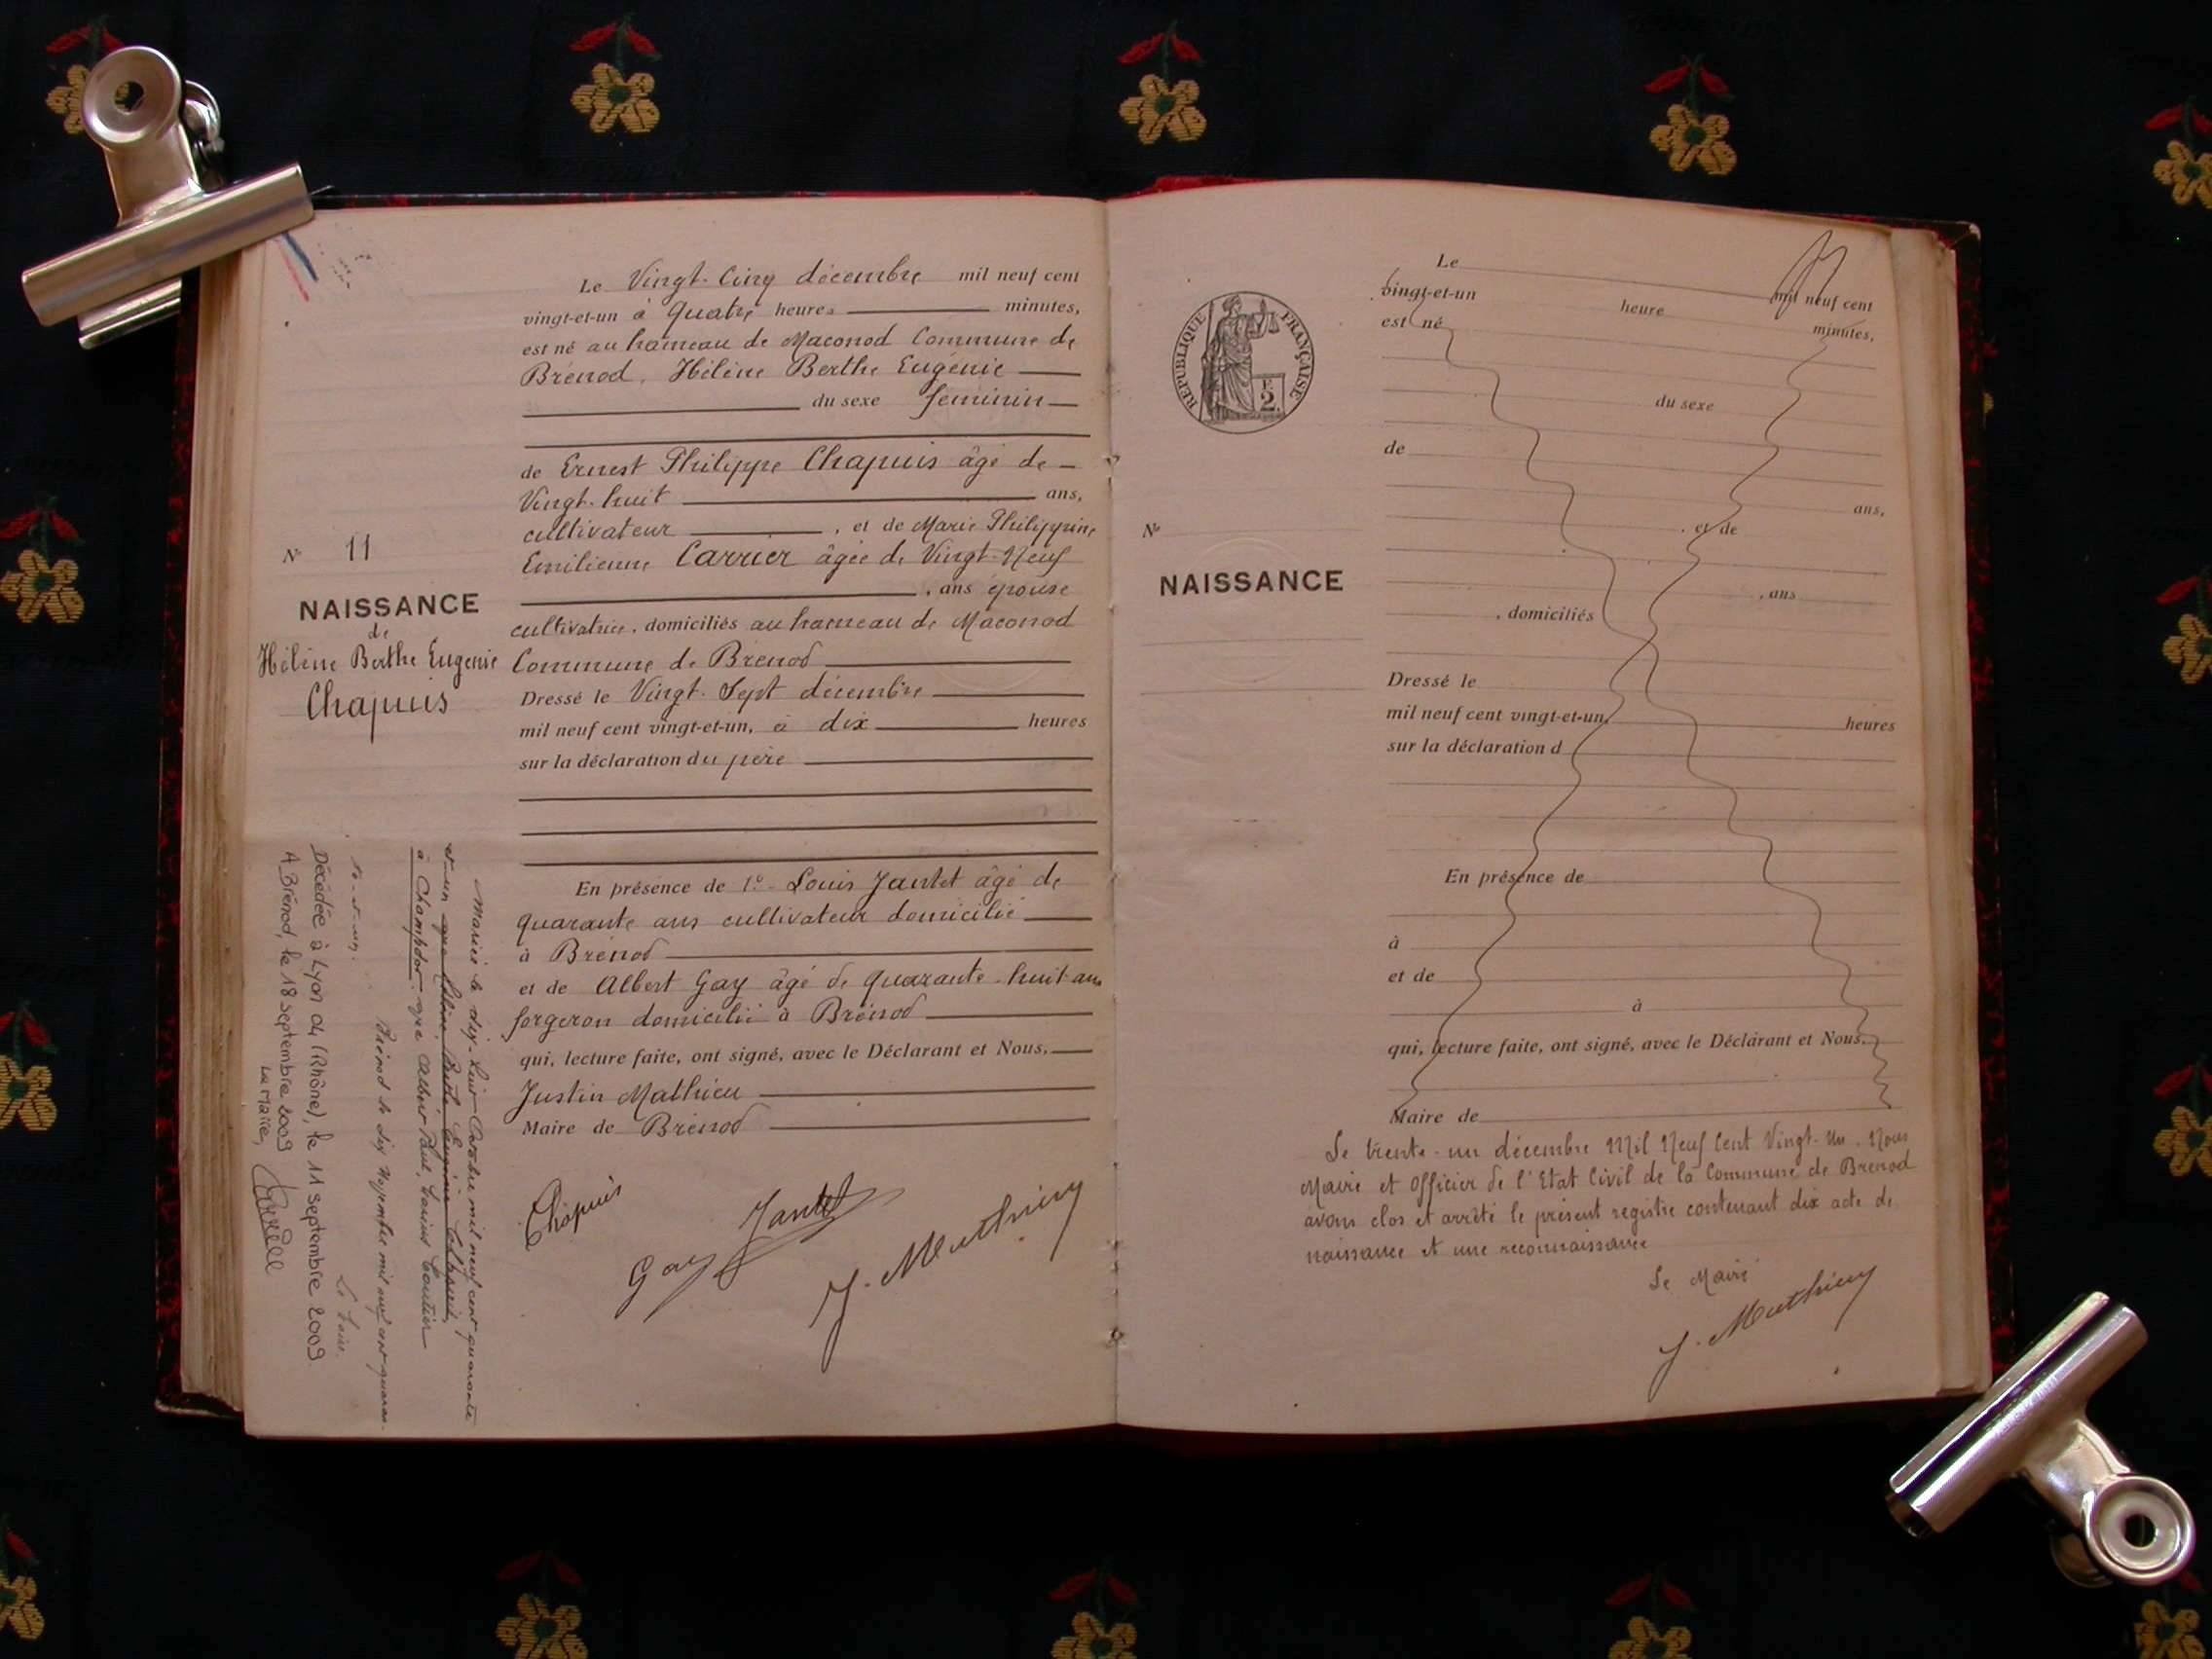 Le Vingt-Cinq décembre mil neuf cent
vingt-et-un à quatre heures minutes,
est né au hameau de Maconod Commune de
Brénod, Hélène Berthe Eugénie
du sexe féminin
de Ernest Philippe Chapuis âgé de
Vingt-huit ans,
cultivateur, et de Marie Philippine
Emilienne Carrier âgée de Vingt-Neuf
, ans épouse
cultivatrice, domiciliés au hameau de Maconod
Commune de Brenod
Dressé le Vingt-Sept décembre
mil neuf cent vingt-et-un, à dix heures
sur la déclaration du père
En présence de 1º- Louis Jantet âgé de
quarante ans cultivateur domicilié
à Brénod
et de Albert Gay âgé de quarante-huit ans
forgeron domicilié à Brénod
qui, lecture faite, ont signé, avec le Déclarant et Nous,
Justin Mathieu
Maire de Brénod
Chapuis
Jantet
Gay
J. Mathieu
Nº 11
NAISSANCE
de
Hélène Berthe Eugenie
Chapuis
Mariée le dix-huit Octobre mil neuf cent quarante
et-un que Hélène Berthe Eugénie Chapuis,
à Champdor. Albert Paul
Brénod le dix Novembre mil neuf cent quaran-
te-et-un.
Le Maire.
Décédée à Lyon (Rhône), le 11 septembre 2009
A Brénod, le 18 septembre 2009
Le Maire,
RÉPUBLIQUE FRANÇAISE
2
Nº
NAISSANCE
Le mil neuf cent
vingt-et-un heure minutes,
est né
du sexe
de
ans,
, et de
, ans
, domiciliés
Dressé le
mil neuf cent vingt-et-un, heures
sur la déclaration d
En présence de
à
et de
à
qui, lecture faite, ont signé, avec le Déclarant et Nous,
Maire de
Le trente-un décembre Mil Neuf Cent Vingt-Un. Nous
Maire et Officier de l'Etat Civil de la Commune de Brenod
avons clos et arrêté le présent registre contenant dix acte de
naissance et une reconnaissance
Le Maire
J. Mathieu